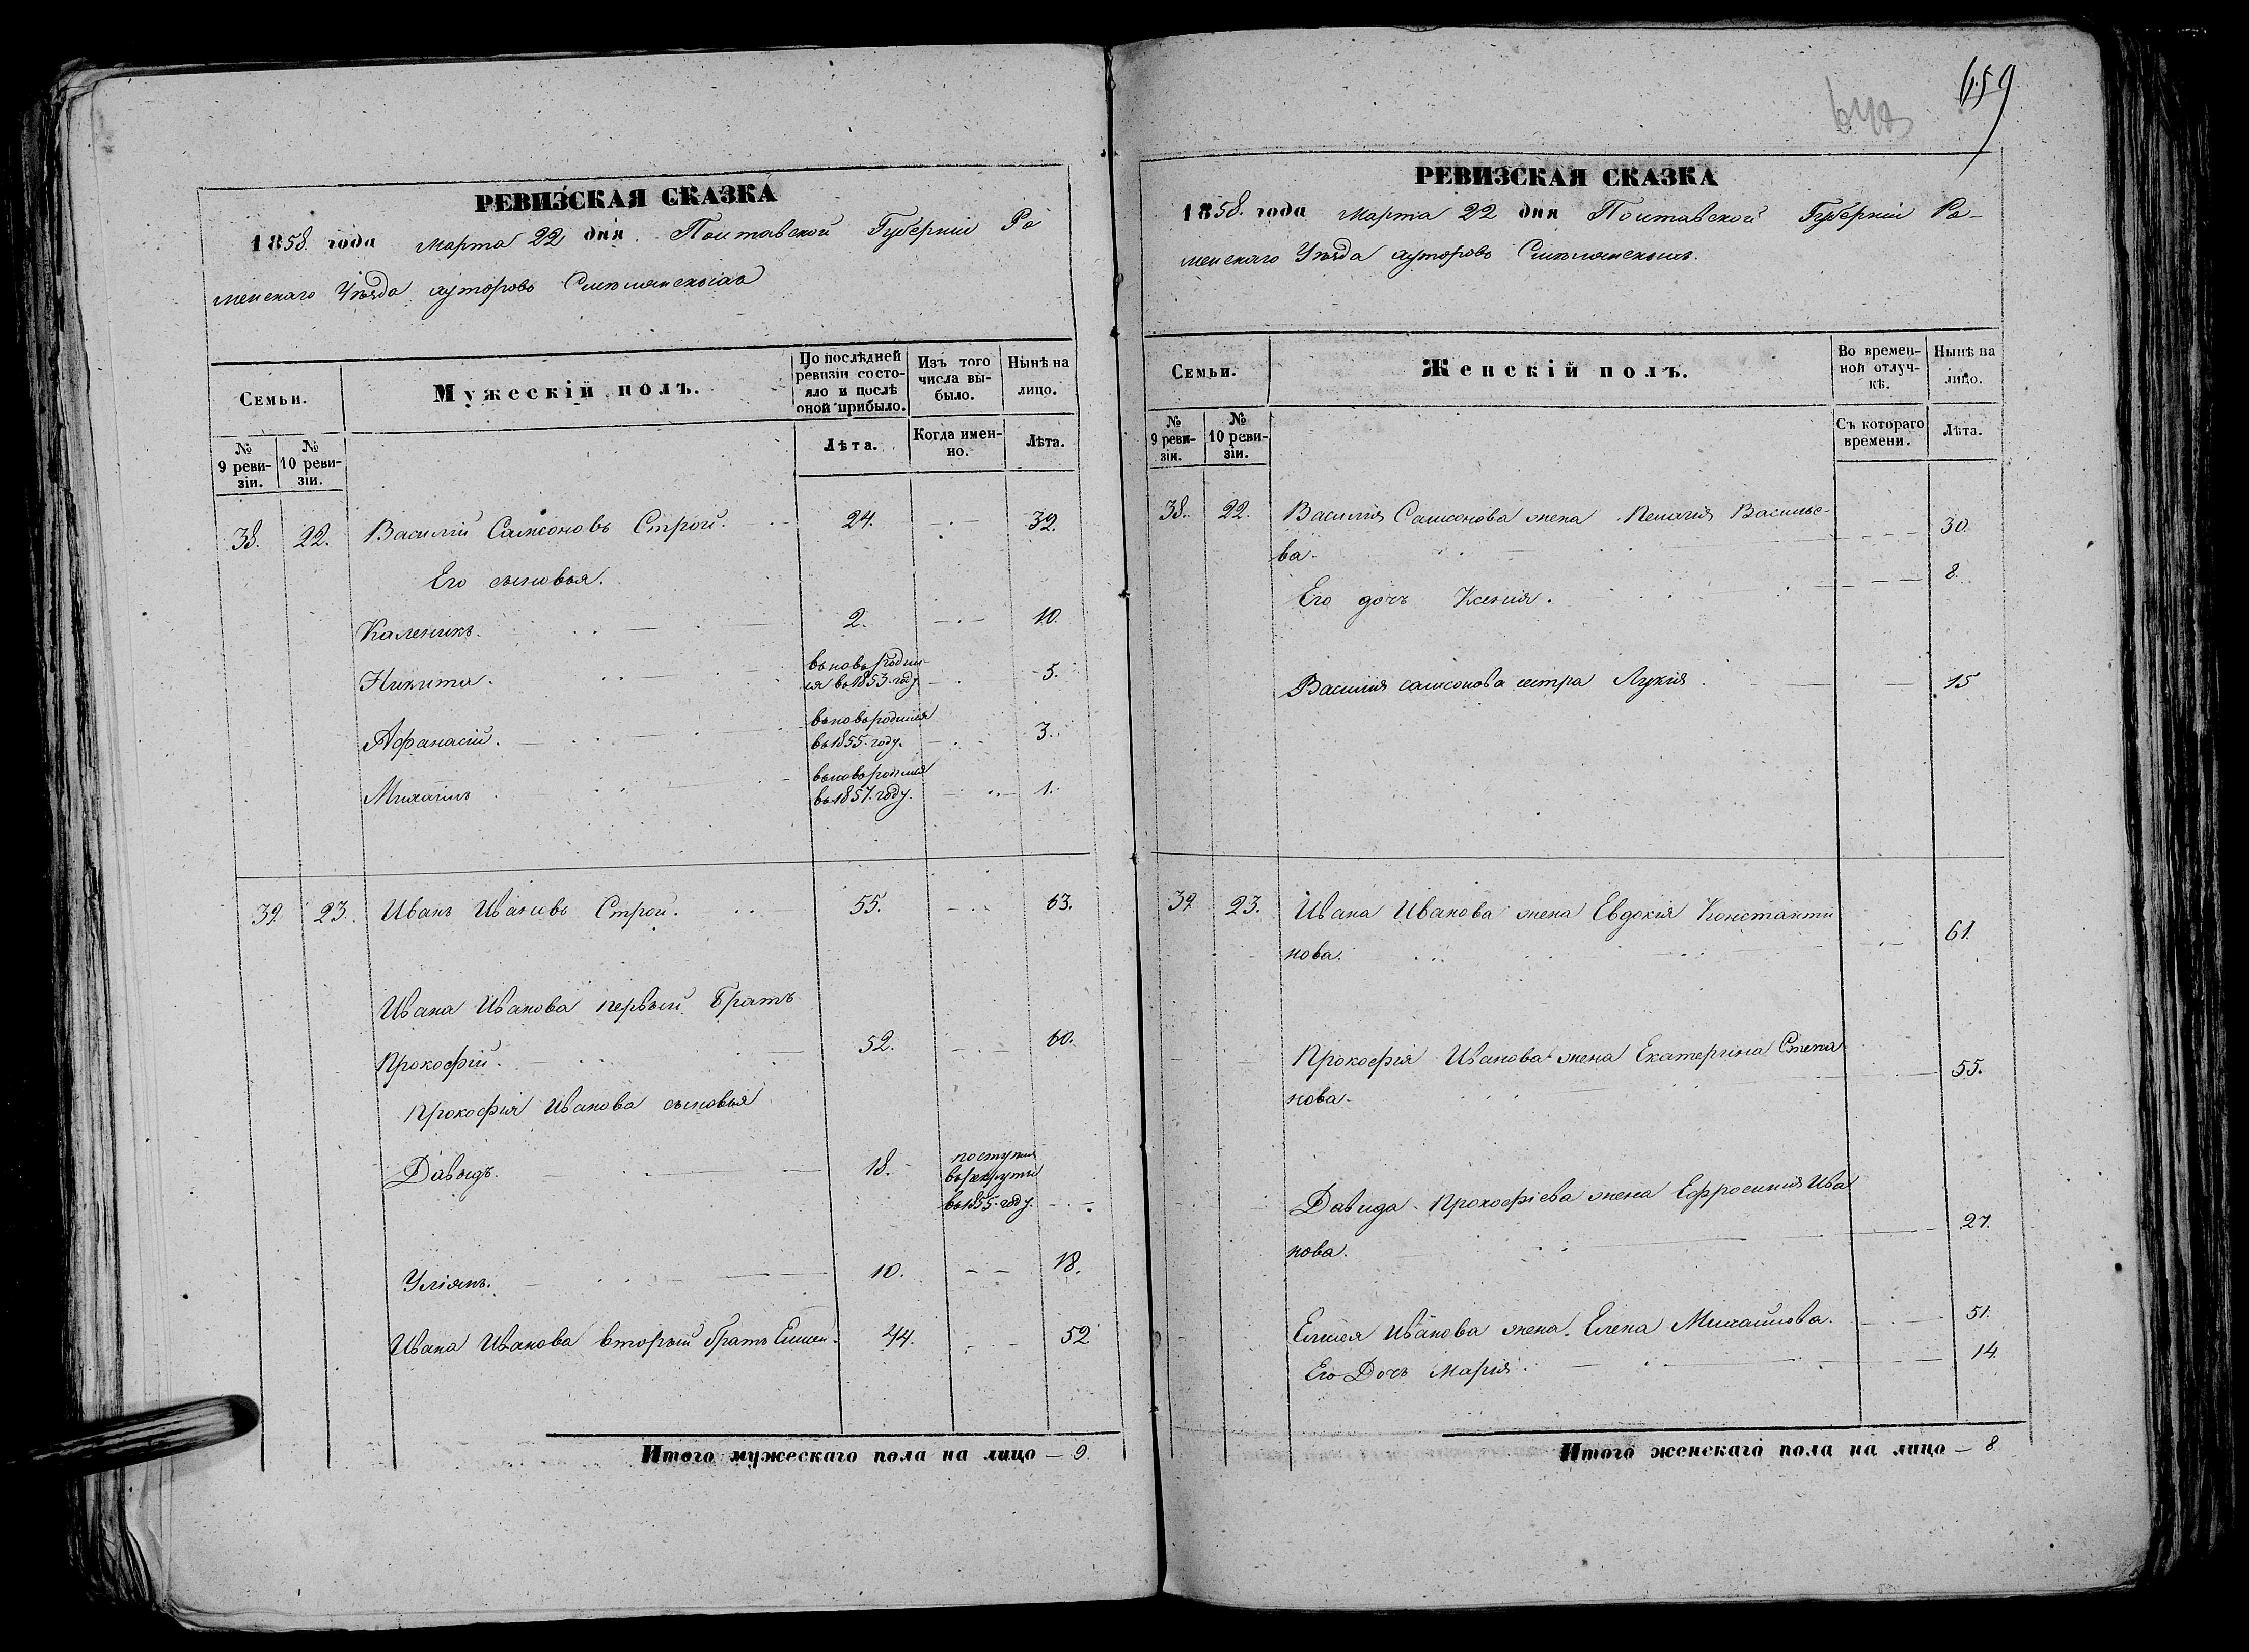 РЕВИЗСКАЯ СКАЗКА
1858. года марта 22 дня Полтавской Губерніи Ро
менскаго Уѣзда хуторовъ Смѣлянскихъ
Семьи.
Мужескій полъ.
По послѣдней ревизіи состояло и послѣ оной прибыло.
Изъ того числа выбыло.
Нынѣ на лицо.
№ 9 ревизіи.
№ 10 ревизіи.
Лѣта.
Когда именно.
Лѣта.
38. 22. Василій Самсоновъ Строй. 24. 32.
Его сыновья.
Каленикъ. 2. 10.
Никита. вновь родил
ся въ 1853. году. 5.
Афанасій. вновь родился
въ 1855. году. 3.
Михаилъ вновь родился
въ 1857. году. 1.
39. 23. Иванъ Ивановъ Строй. 55. 63.
Ивана Иванова первый братъ
Прокофій. 52. 60.
Прокофія Иванова сыновья
Давыдъ. 18. поступил
въ рекруты
въ 1855. году.
Уліянъ. 10. 18.
Ивана Иванова вторый братъ Елисей. 44. 52
Итого мужескаго пола на лицо — 9.
659
РЕВИЗСКАЯ СКАЗКА
1858. года марта 22 дня Полтавской Губерніи Ро-
менскаго Уѣзда хуторовъ Смѣлянскихъ.
Семьи.
Женскій полъ.
Во временной отлучкѣ.
Нынѣ на лицо.
№ 9 ревизіи.
№ 10 ревизіи.
Съ котораго времени.
Лѣта.
38. 22. Василія Самсонова жена Пелагія Василье-
ва. 30.
Его дочь Ксенія. 8.
Василія Самсонова сестра Лукія 15
39. 23. Ивана Иванова жена Евдокія Константи
нова. 61.
Прокофія Иванова жена Екатерина Степа
нова. 55.
Давида Прокофіева жена Ефросинія Ива
нова. 27.
Елисея Иванова жена Елена Михайлова. 51.
Его Дочь Марія. 14.
Итого женскаго пола на лицо — 8